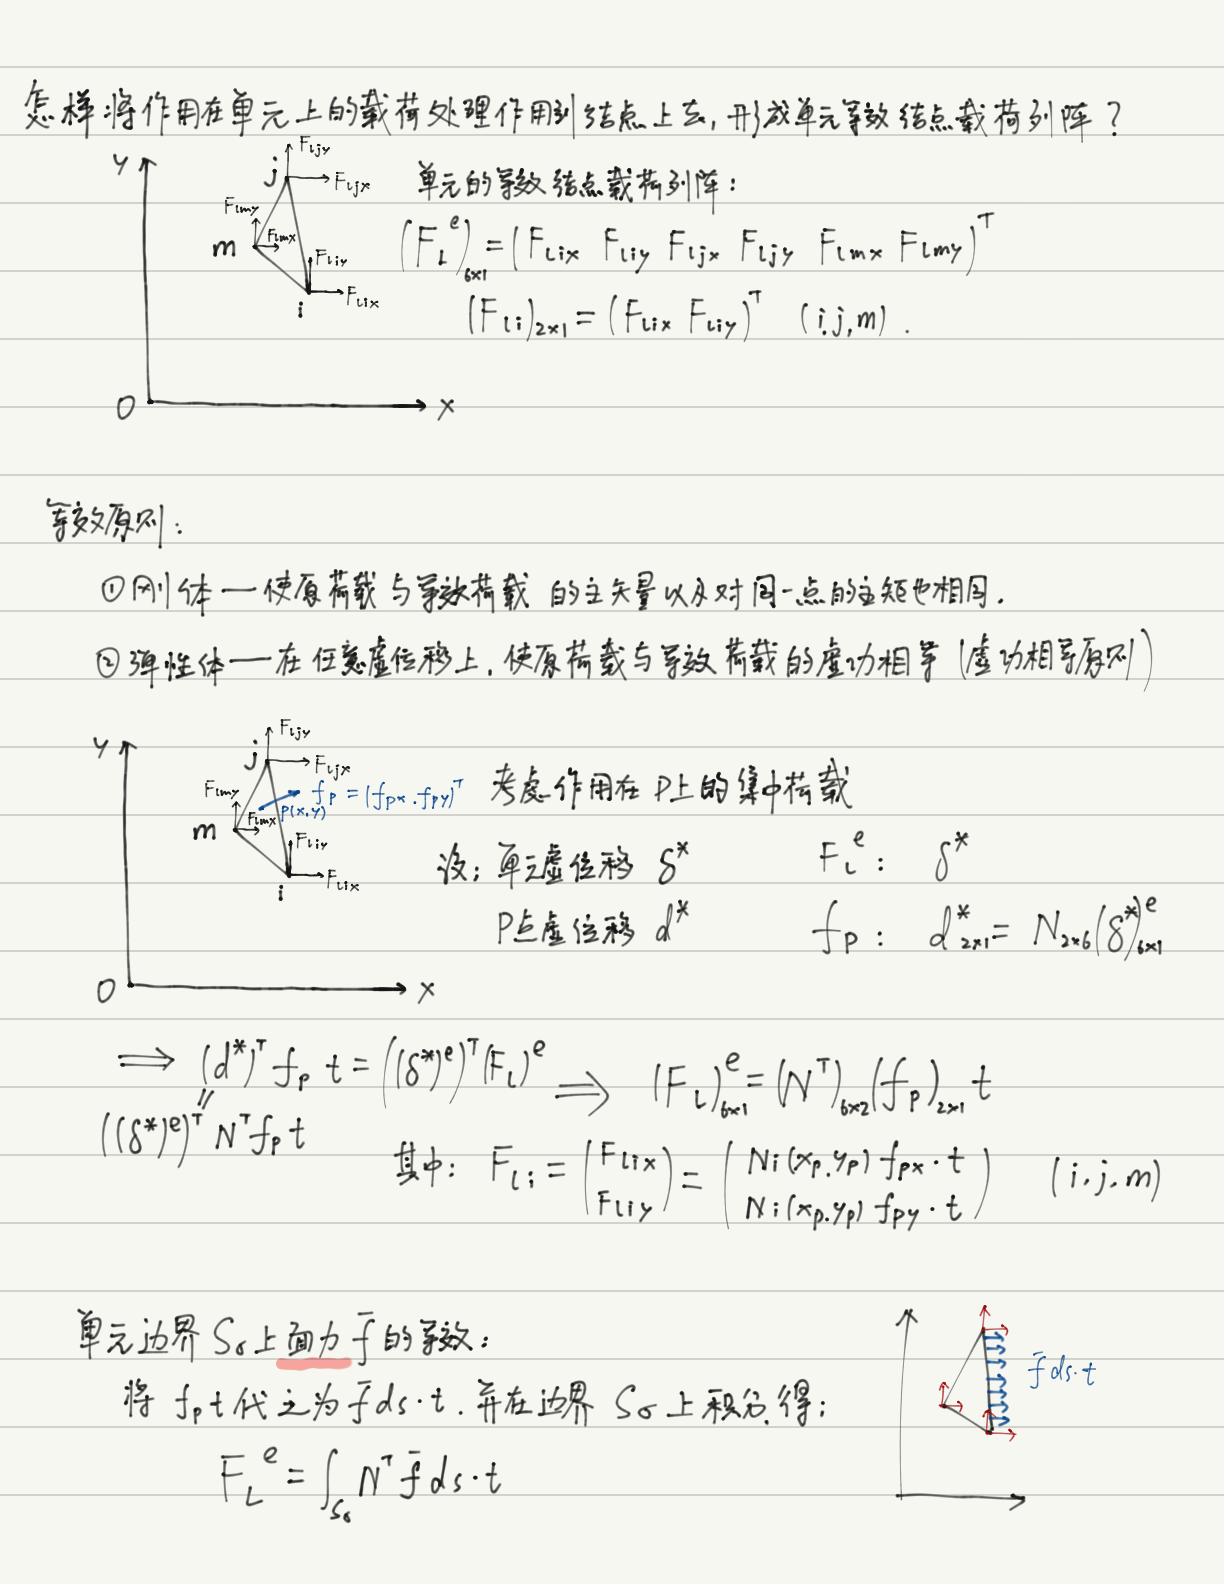 怎样将作用在单元上的载荷处理作用到结点上去,形成单元等效结点载荷列阵?
y
F_Ljy
j
F_Ljx
F_Lmy
m
F_Lmx
F_Liy
F_Lix
i
O
x
单元的等效结点载荷列阵:
(F_L^e)_{6×1} = (F_Lix F_Liy F_Ljx F_Ljy F_Lmx F_Lmy)^T
(F_Li)_{2×1} = (F_Lix F_Liy)^T (i,j,m).
等效原则:
①刚体—使原荷载与等效荷载的主矢量以及对同一点的主矩也相同.
②弹性体—在任意虚位移上,使原荷载与等效荷载的虚功相等(虚功相等原则)
y
F_Ljy
j
F_Ljx
F_Lmy
f_p = (f_px . f_py)^T
P(x,y)
m
F_Lmx
F_Liy
F_Lix
i
O
x
考虑作用在P上的集中荷载
设: 单元虚位移 δ^* F_L^e: δ^*
P点虚位移 d^* f_p: d^*_{2×1} = N_{2×6}(δ^*)^e_{6×1}
⟹ (d^*)^T f_p t = ((δ^*)^e)^T (F_L)^e ⟹ (F_L)^e_{6×1} = (N^T)_{6×2} (f_p)_{2×1} t
((δ^*)^e)^T N^T f_p t
其中: F_Li = (F_Lix F_Liy) = (N_i(x_p,y_p) f_px · t N_i(x_p,y_p) f_py · t) (i,j,m)
单元边界 S_σ 上面力 f̄ 的等效:
将 f_p t 代之为 f̄ ds·t. 并在边界 S_σ 上积分,得:
F_L^e = ∫_{S_σ} N^T f̄ ds·t
f̄ ds·t